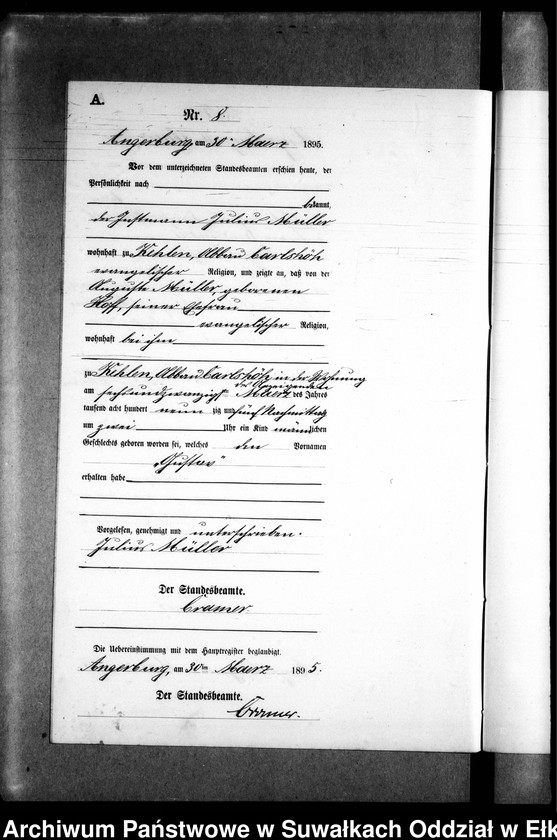 A.
Nr. 8.
Angerburg am 30ten Maerz 1895.
Vor dem unterzeichneten Standesbeamten erschien heute, der
Persönlichkeit nach
bekannt,
der Instmann Julius Müller
wohnhaft zu Kehlen, Abbau Carlshöh
evangelischer Religion, und zeigte an, daß von der
Auguste Müller, geborenen
Hoff, seiner Ehefrau
evangelischer Religion,
wohnhaft bei ihm
zu Kehlen, Abbau Carlshöh, in der Wohnung
des Anzeigenden
am sechsundzwanzigsten Maerz des Jahres
tausend acht hundert neun zig und fünf Nachmittags
um zwei Uhr ein Kind männlichen
Geschlechts geboren worden sei, welches den Vornamen
„Gustav"
erhalten habe
Vorgelesen, genehmigt und unterschrieben.
Julius Müller
Der Standesbeamte.
Cramer.
Die Uebereinstimmung mit dem Hauptregister beglaubigt.
Angerburg, am 30ten Maerz 1895.
Der Standesbeamte.
Cramer.
Archiwum Państwowe w Suwałkach Oddział w Ełk